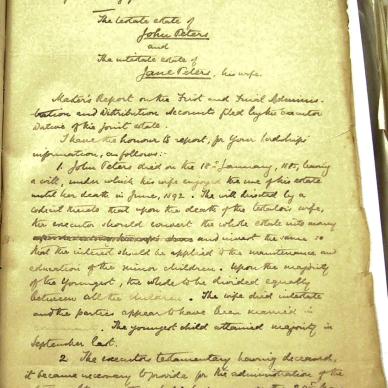 The testate estate of
John Peters
and
The intestate estate of
Jane Peters, his wife.
Master's Report on the First and Final Adminis-
tration and Distribution Accounts filed by the Executor
Dative of this joint estate.
I have the honour to report, for Your Lordships'
information, as follows:-
1. John Peters died on the 18th January, 1885, leaving
a will, under which his wife enjoyed the use of his estate
until her death in June, 1892. The will directed by a
codicil thereto that upon the death of the testator's wife,
her executor should convert the whole estate into money
and invest the same so
that the interest should be applied to the maintenance and
education of the minor children. Upon the majority
of the Youngest, the whole to be divided equally
between all the children. The wife died intestate
and the parties appear to have been married in
. The youngest child attained majority in
September last.
2. The executors testamentary having deceased,
it became necessary to provide for the administration of the